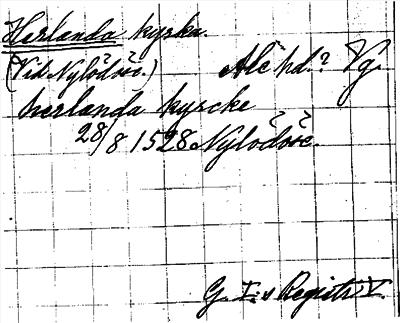 Herlanda kyrka.
(Vid Nylödöse.) Ale hd.? Vg.
herlanda kyrcke
28/8 1528 Nylodose.
G. I:s Registr. V.